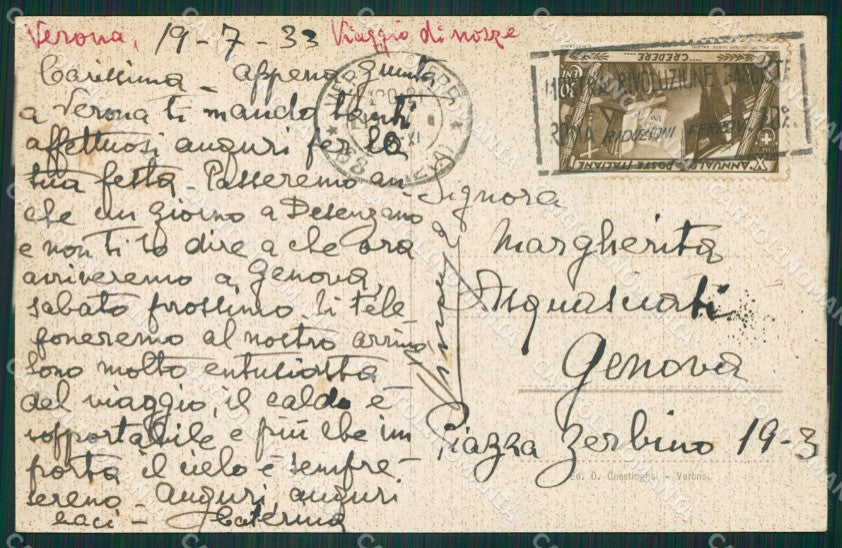 Verona, 19-7-33 Viaggio di nozze
Carissima - Appena giunta
a Verona ti mando tanti
affettuosi auguri per la
tua festa - Passeremo an-
che un giorno a Desenzano
e non ti so dire a che ora
arriveremo a Genova,
sabato prossimo. Ti tele
foneremo al nostro arrivo
Sono molto entusiasta
del viaggio, il caldo è
sopportabile e più che im
porta il cielo è sempre
sereno - Auguri auguri
baci - Caterina
VERONA
CREDERE
MOSTRA RIVOLUZIONE FASCISTA
ROMA RIDUZIONI FERROV. 70%
X ANNUALE POSTE ITALIANE
30
Signora
Margherita
Acquasciati
Genova
Piazza Zerbino 19-3
Ed. O. Onestinghel - Verona.
CARTOLINOMANIA